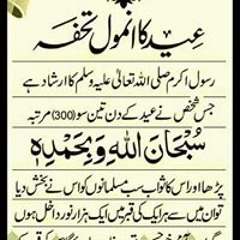 عید کا انمول تحفہ
رسول اکرم صلی اللہ تعالیٰ علیہ وسلم کا ارشاد ہے
جس شخص نے عید کے دن تین سو (300) مرتبہ
سُبْحَانَ اللهِ وَبِحَمْدِهٖ
پڑھا اور اس کا ثواب سب مسلمانوں کو اس نے بخش دیا
تو ان میں سے ہر ایک کی قبر میں ایک ہزار نور داخل ہوں